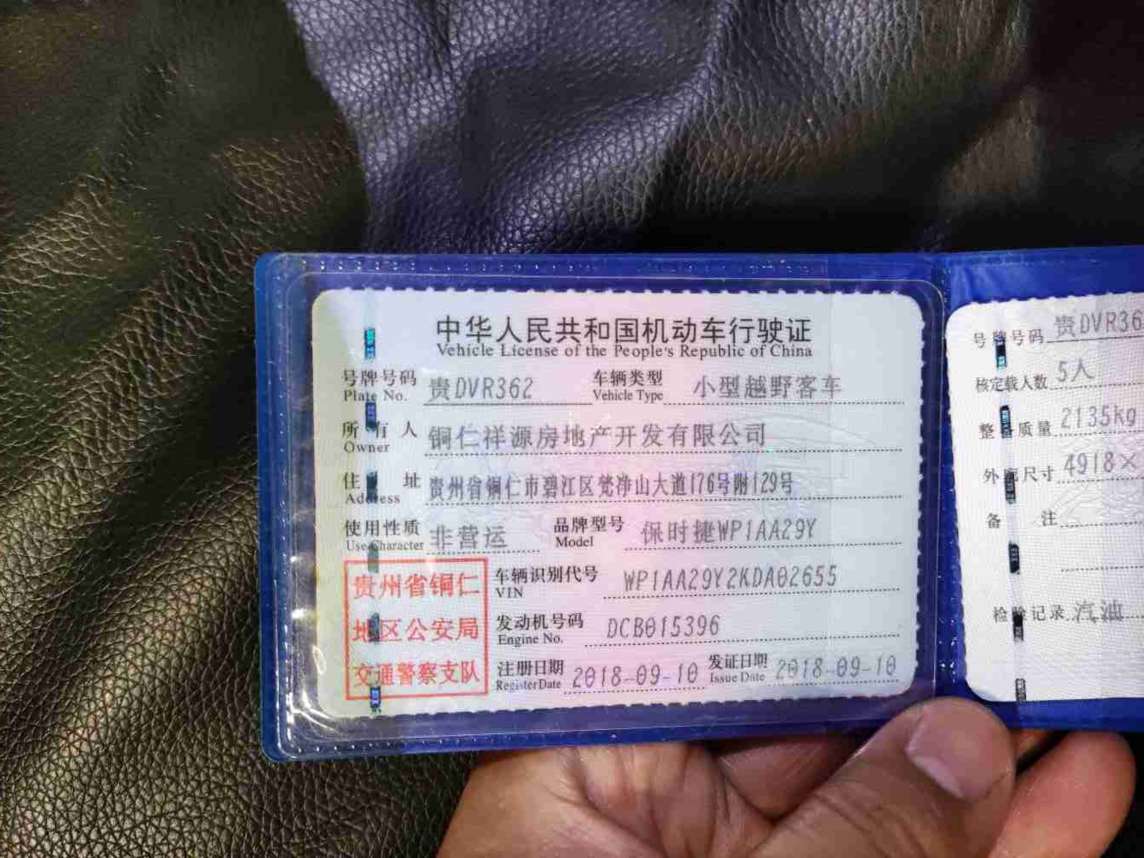 中华人民共和国机动车行驶证
Vehicle License of the People's Republic of China
号牌号码 贵DVR362 车辆类型 小型越野客车
Plate No. Vehicle Type
所有人 铜仁祥源房地产开发有限公司
Owner
住址 贵州省铜仁市碧江区梵净山大道176号附129号
Address
使用性质 非营运 品牌型号 保时捷WP1AA29Y
Use Character Model
贵州省铜仁
地区公安局
交通警察支队
车辆识别代号 WP1AA29Y2KDA02655
VIN
发动机号码 DCB015396
Engine No.
注册日期 2018-09-10 发证日期 2018-09-10
Register Date Issue Date
号牌号码 贵DVR36
核定载人数 5人
整备质量 2135kg
外廓尺寸 4918×
备注
检验记录 汽油